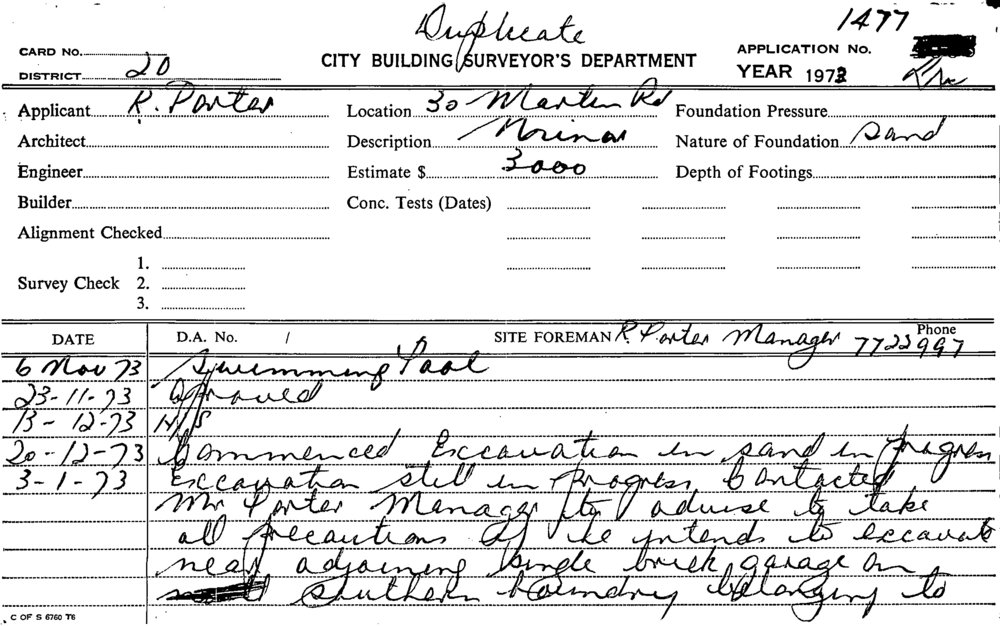 Duplicate
1477
CARD No.
CITY BUILDING SURVEYOR'S DEPARTMENT
APPLICATION No.
DISTRICT 20
YEAR 1973
Applicant R. Porter
Location 30 Martin Rd
Foundation Pressure
Architect
Description
Nature of Foundation sand
Engineer
Estimate $ 3000
Depth of Footings
Builder
Conc. Tests (Dates)
Alignment Checked
Survey Check
1.
2.
3.
DATE
D.A. No. /
SITE FOREMAN R. Porter Manager
Phone 7722997
6 Nov 73 Swimming Pool
23-11-73 Aproved
13-12-73 N/S
20-12-73 Commenced Excavation in sand in progress
3-1-73 Excavation still in progress Contacted
Mr Porter Manager to advise to take
all precautions if he intends to excavate
near adjoining single brick garage on
southern boundry belonging to
C OF S 6760 T6